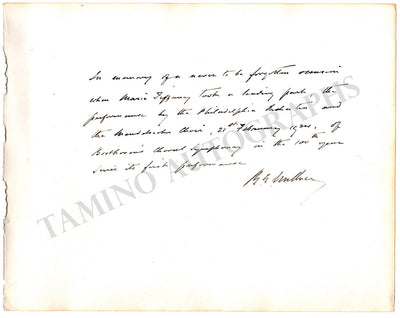 In memory of a never to be forgotten occasion
when Marie Tiffany took a leading part, the
performance by the Philadelphia Orchestra and
the Mendelssohn Choir, 21st February 1924, of
Beethoven's Choral Symphony in the 100th year
since its first performance
TAMINO AUTOGRAPHS